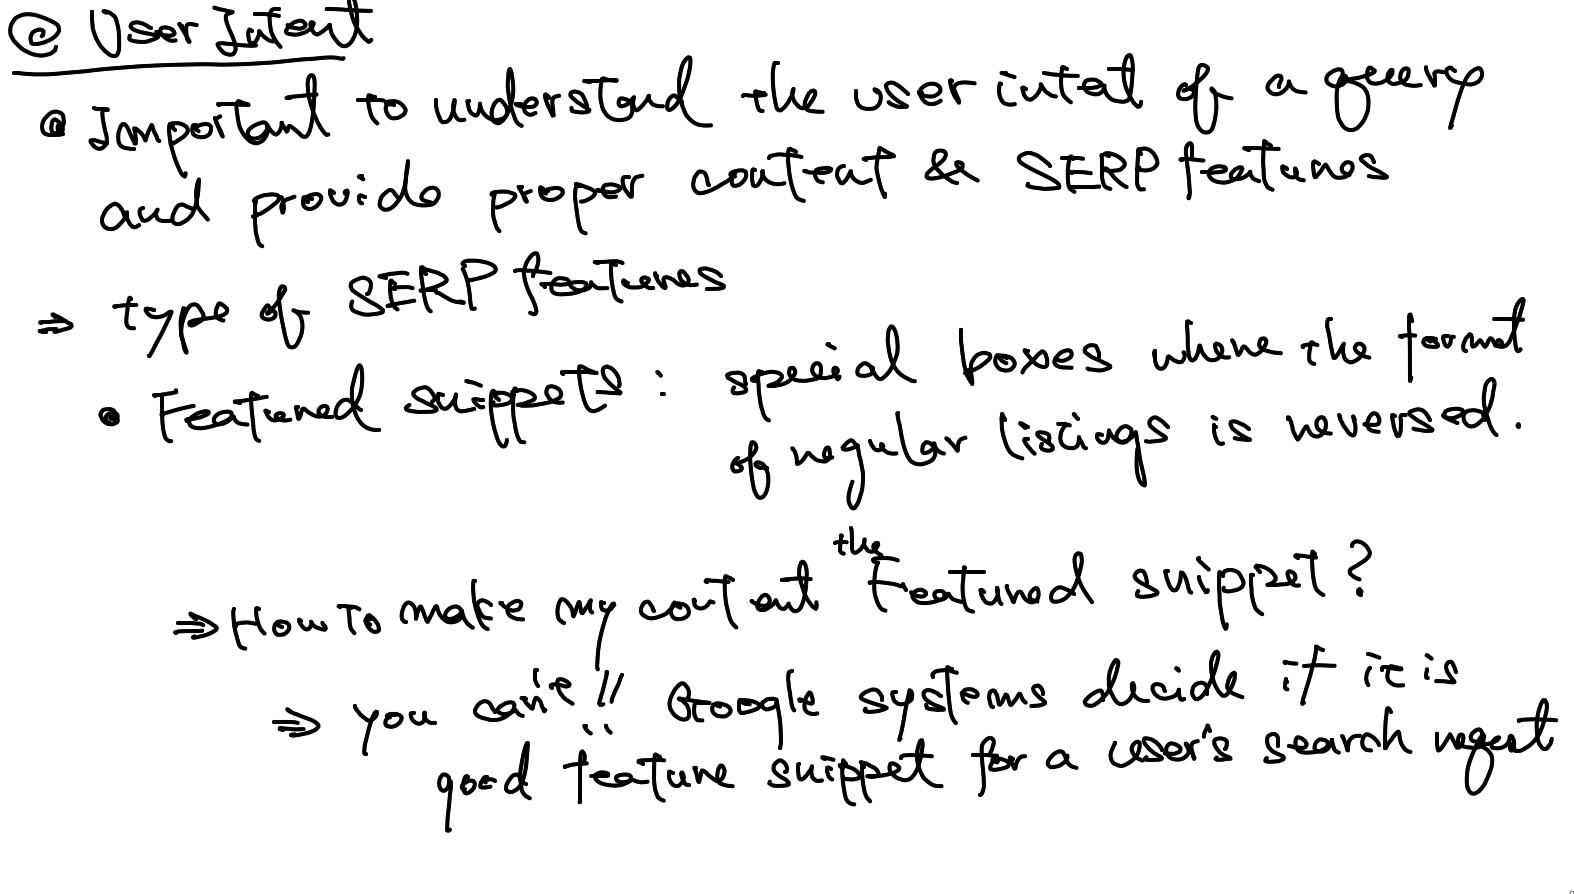 @ User Intent
@ Important to understand the user intet of a query
and provide proper content & SERP features
⇒ type of SERP features
• Featured snippets : special boxes where the format
of regular listings is reversed.
the
⇒ How To make my content Featured snippet?
⇒ you can't!! Google systems decide if it is
good feature snippet for a user's search reqest